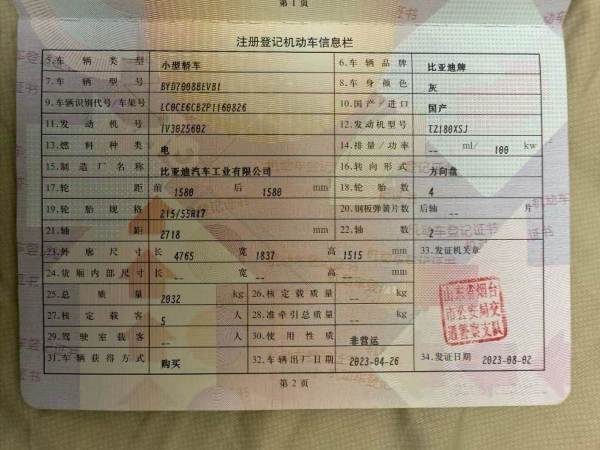 第1页
注册登记机动车信息栏
5.车辆类型 小型轿车 6.车辆品牌 比亚迪牌
7.车辆型号 BYD7008BEVB1 8.车身颜色 灰
9.车辆识别代号/车架号 LC0CE6CB2P1160826 10.国产/进口 国产
11.发动机号 1V3025602 12.发动机型号 TZ180XSJ
13.燃料种类 电 14.排量/功率 -- ml/ 100 kw
15.制造厂名称 比亚迪汽车工业有限公司 16.转向形式 方向盘
17.轮距 前 1580 后 1580 mm 18.轮胎数 4
19.轮胎规格 215/55R17 20.钢板弹簧片数 后轴 -- 片
21.轴距 2718 mm 22.轴数 2
23.外廓尺寸 长 4765 宽 1837 高 1515 mm 33.发证机关章
24.货厢内部尺寸 长 -- 宽 -- 高 -- mm
25.总质量 2032 kg 26.核定载质量 -- kg
27.核定载客 5 人 28.准牵引总质量 -- kg
29.驾驶室载客 -- 人 30.使用性质 非营运
31.车辆获得方式 购买 32.车辆出厂日期 2023-04-26 34.发证日期 2023-08-02
山东省烟台
市公安局交
通警察支队
第2页